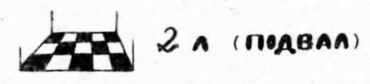 2 л (ПІДВАЛ)